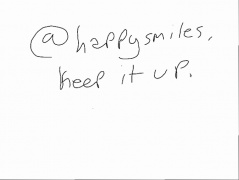 @happysmiles,
keep it up.